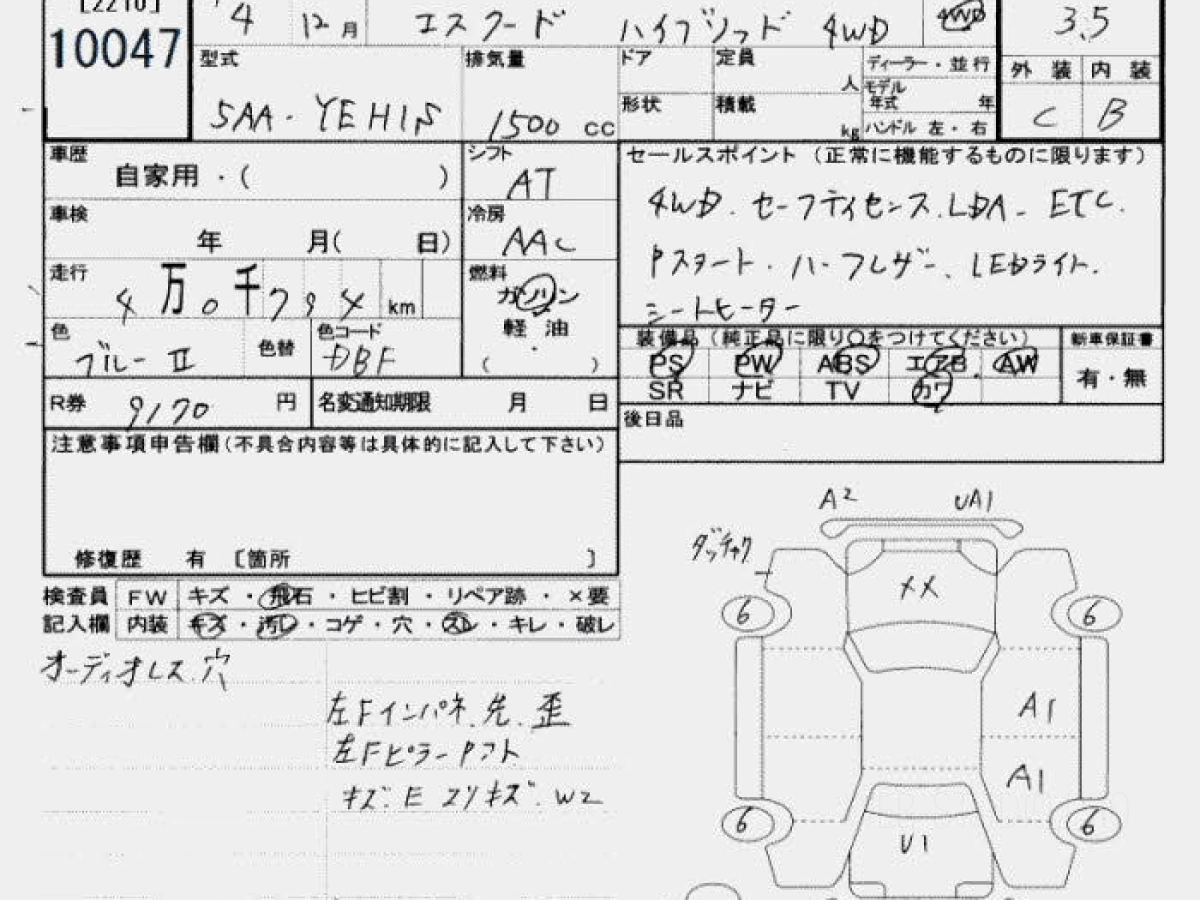 [2210]
10047
4 12 月 エスクード ハイブリッド 4WD 4WD 3.5
型式 5AA-YEH1S
排気量 1500 cc
ドア
定員 人
形状
積載 kg
ディーラー・並行
モデル年式 年
ハンドル 左・右
外装 内装
C B
車歴 自家用・( )
シフト AT
車検 年 月( 日)
冷房 AAC
走行 4万0千794 km
燃料 ガソリン
軽油
( )
色 ブルーII 色替 色コード DBF
R券 9170 円 名変通知期限 月 日
セールスポイント (正常に機能するものに限ります)
4WD. セーフティセンス. LDA. ETC.
Pスタート. ハーフレザー. LEDライト.
シートヒーター
装備品 (純正品に限り○をつけてください) 新車保証書
PS PW ABS エアB AW 有・無
SR ナビ TV カワ
後日品
注意事項申告欄(不具合内容等は具体的に記入して下さい)
修復歴 有 [箇所 ]
検査員 FW キズ・飛石・ヒビ割・リペア跡・×要
記入欄 内装 キズ・汚レ・コゲ・穴・スレ・キレ・破レ
オーディオレス.穴
左Fインパネ.先.歪
左Fピラーアフト
キズ.E スリキズ.W2
A2 UA1
ダッチャク
XX
6 6
A1
A1
6 6
U1